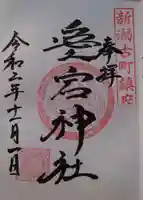 新潟古町鎮座
奉拝
愛宕神社
令和二年十一月一日